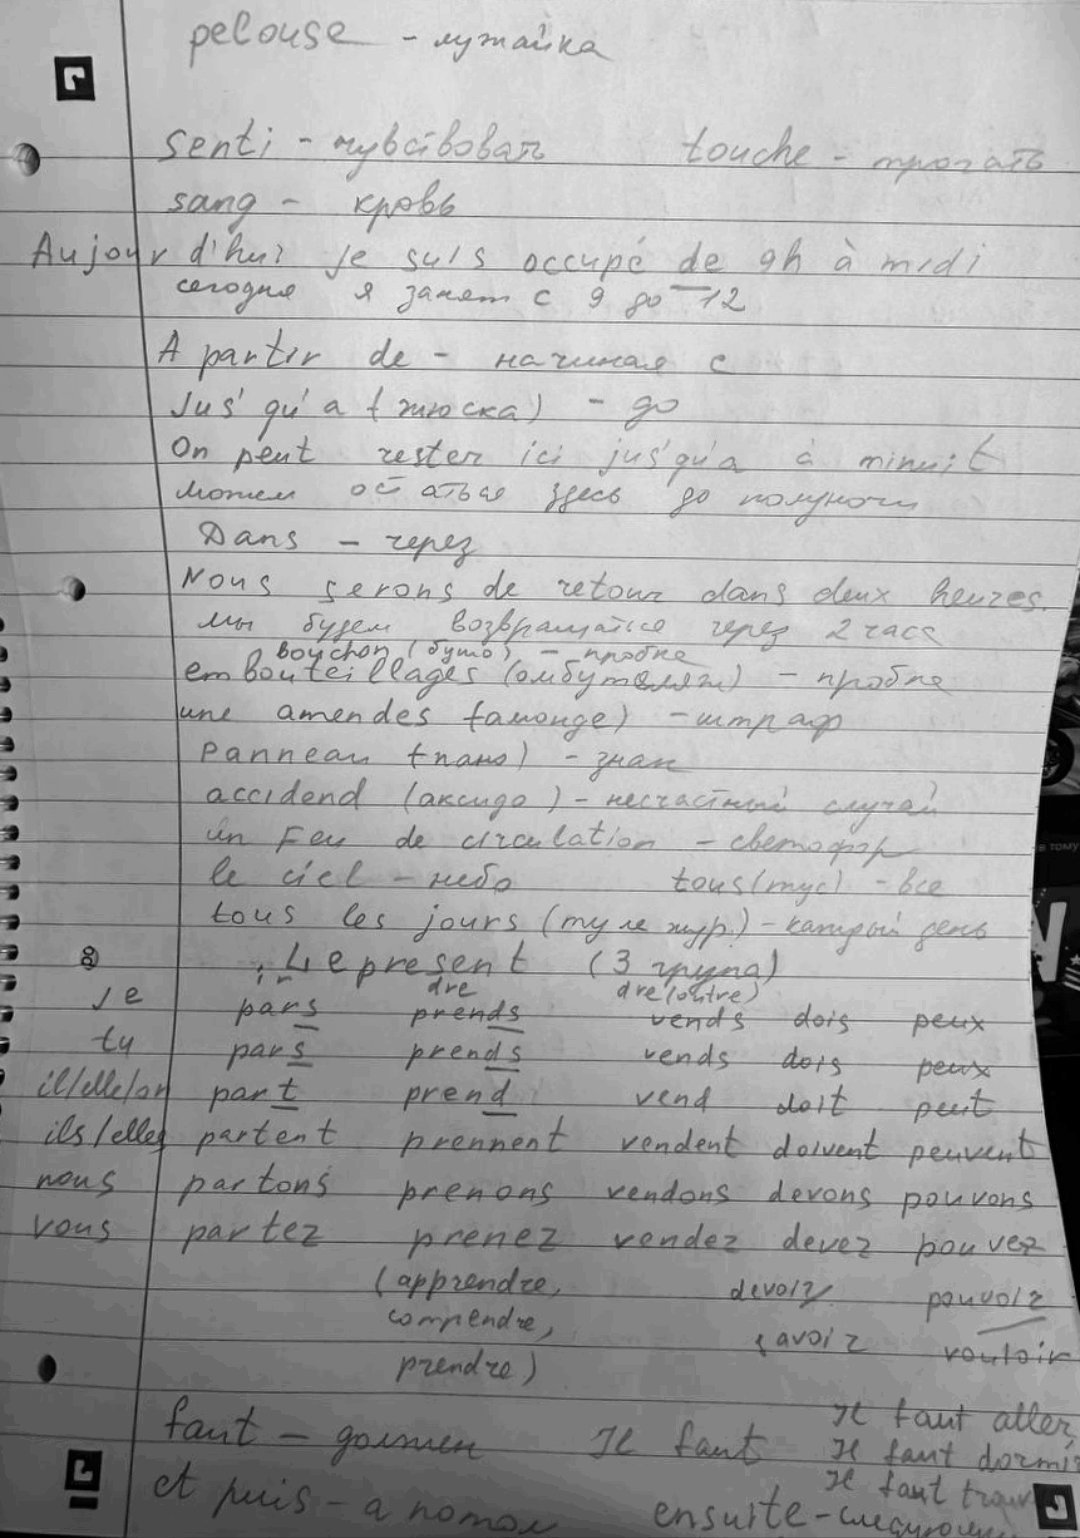 pelouse - лужайка
senti - чувствовать touche - трогать
sang - кровь
Aujour d'hui je suis occupé de 9h à midi
сегодня я занят с 9 до 12
A partir de - начиная с
Jus' qu' a (жюска) - до
On peut rester ici jus'qu'a à minuit
можем остаться здесь до полуночи
Dans - через
Nous serons de retour dans deux heures.
мы будем возвращаться через 2 часа
bouchon (бушо) - пробка
embouteillages (омбутеляж) - пробка
une amendes (амонде) - штраф
Panneau (пано) - знак
accidend (аксидо) - несчастный случай
un Feu de circulation - светофор
le ciel - небо tous (тус) - все
tous les jours (ту ле жур) - каждый день
Le present (3 група)
dre dre (outre)
je pars prends vends dois peux
tu pars prends vends dois peux
il/elle/on part prend vend doit peut
ils/elles partent prennent vendent doivent peuvent
nous partons prenons vendons devons pouvons
vous partez prenez vendez devez pouvez
(apprendre, devoir pouvoir
comprendre, savoir vouloir
prendre)
Il faut aller,
faut - должен Il faut Il faut dormir
Il faut
et puis - а потом ensuite -